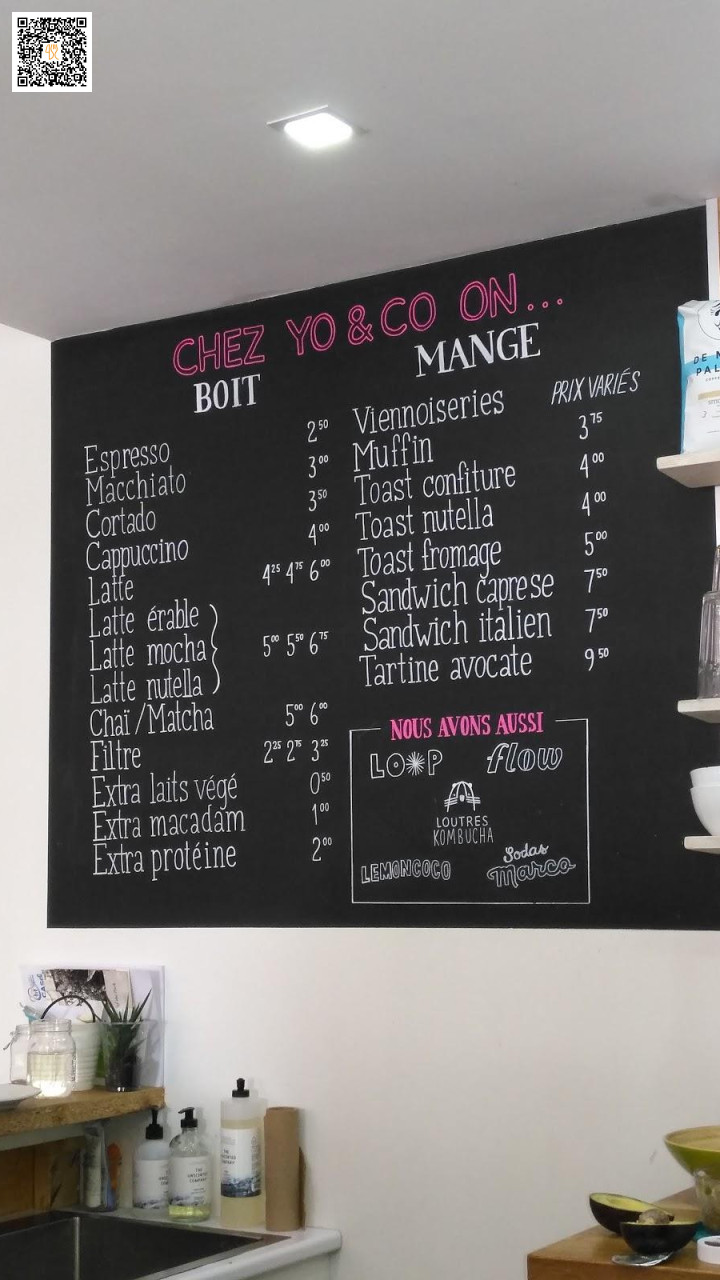 CHEZ YO & CO ON...
BOIT
Espresso 2⁵⁰
Macchiato 3⁰⁰
Cortado 3⁵⁰
Cappuccino 4⁰⁰
Latte 4²⁵ 4⁷⁵ 6⁰⁰
Latte érable
Latte mocha 5⁰⁰ 5⁵⁰ 6⁷⁵
Latte nutella
Chaï/Matcha 5⁰⁰ 6⁰⁰
Filtre 2²⁵ 2⁷⁵ 3²⁵
Extra laits végé 0⁵⁰
Extra macadam 1⁰⁰
Extra protéine 2⁰⁰
MANGE
Viennoiseries PRIX VARIÉS
Muffin 3⁷⁵
Toast confiture 4⁰⁰
Toast nutella 4⁰⁰
Toast fromage 5⁰⁰
Sandwich caprese 7⁵⁰
Sandwich italien 7⁵⁰
Tartine avocate 9⁵⁰
NOUS AVONS AUSSI
LOOP
flow
LOUTRES
KOMBUCHA
LEMONCOCO
Sodas
Marco